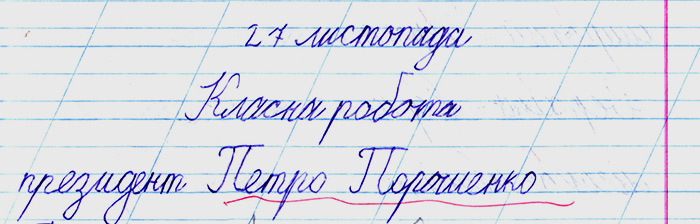 27 листопада
Класна робота
президент Петро Порошенко